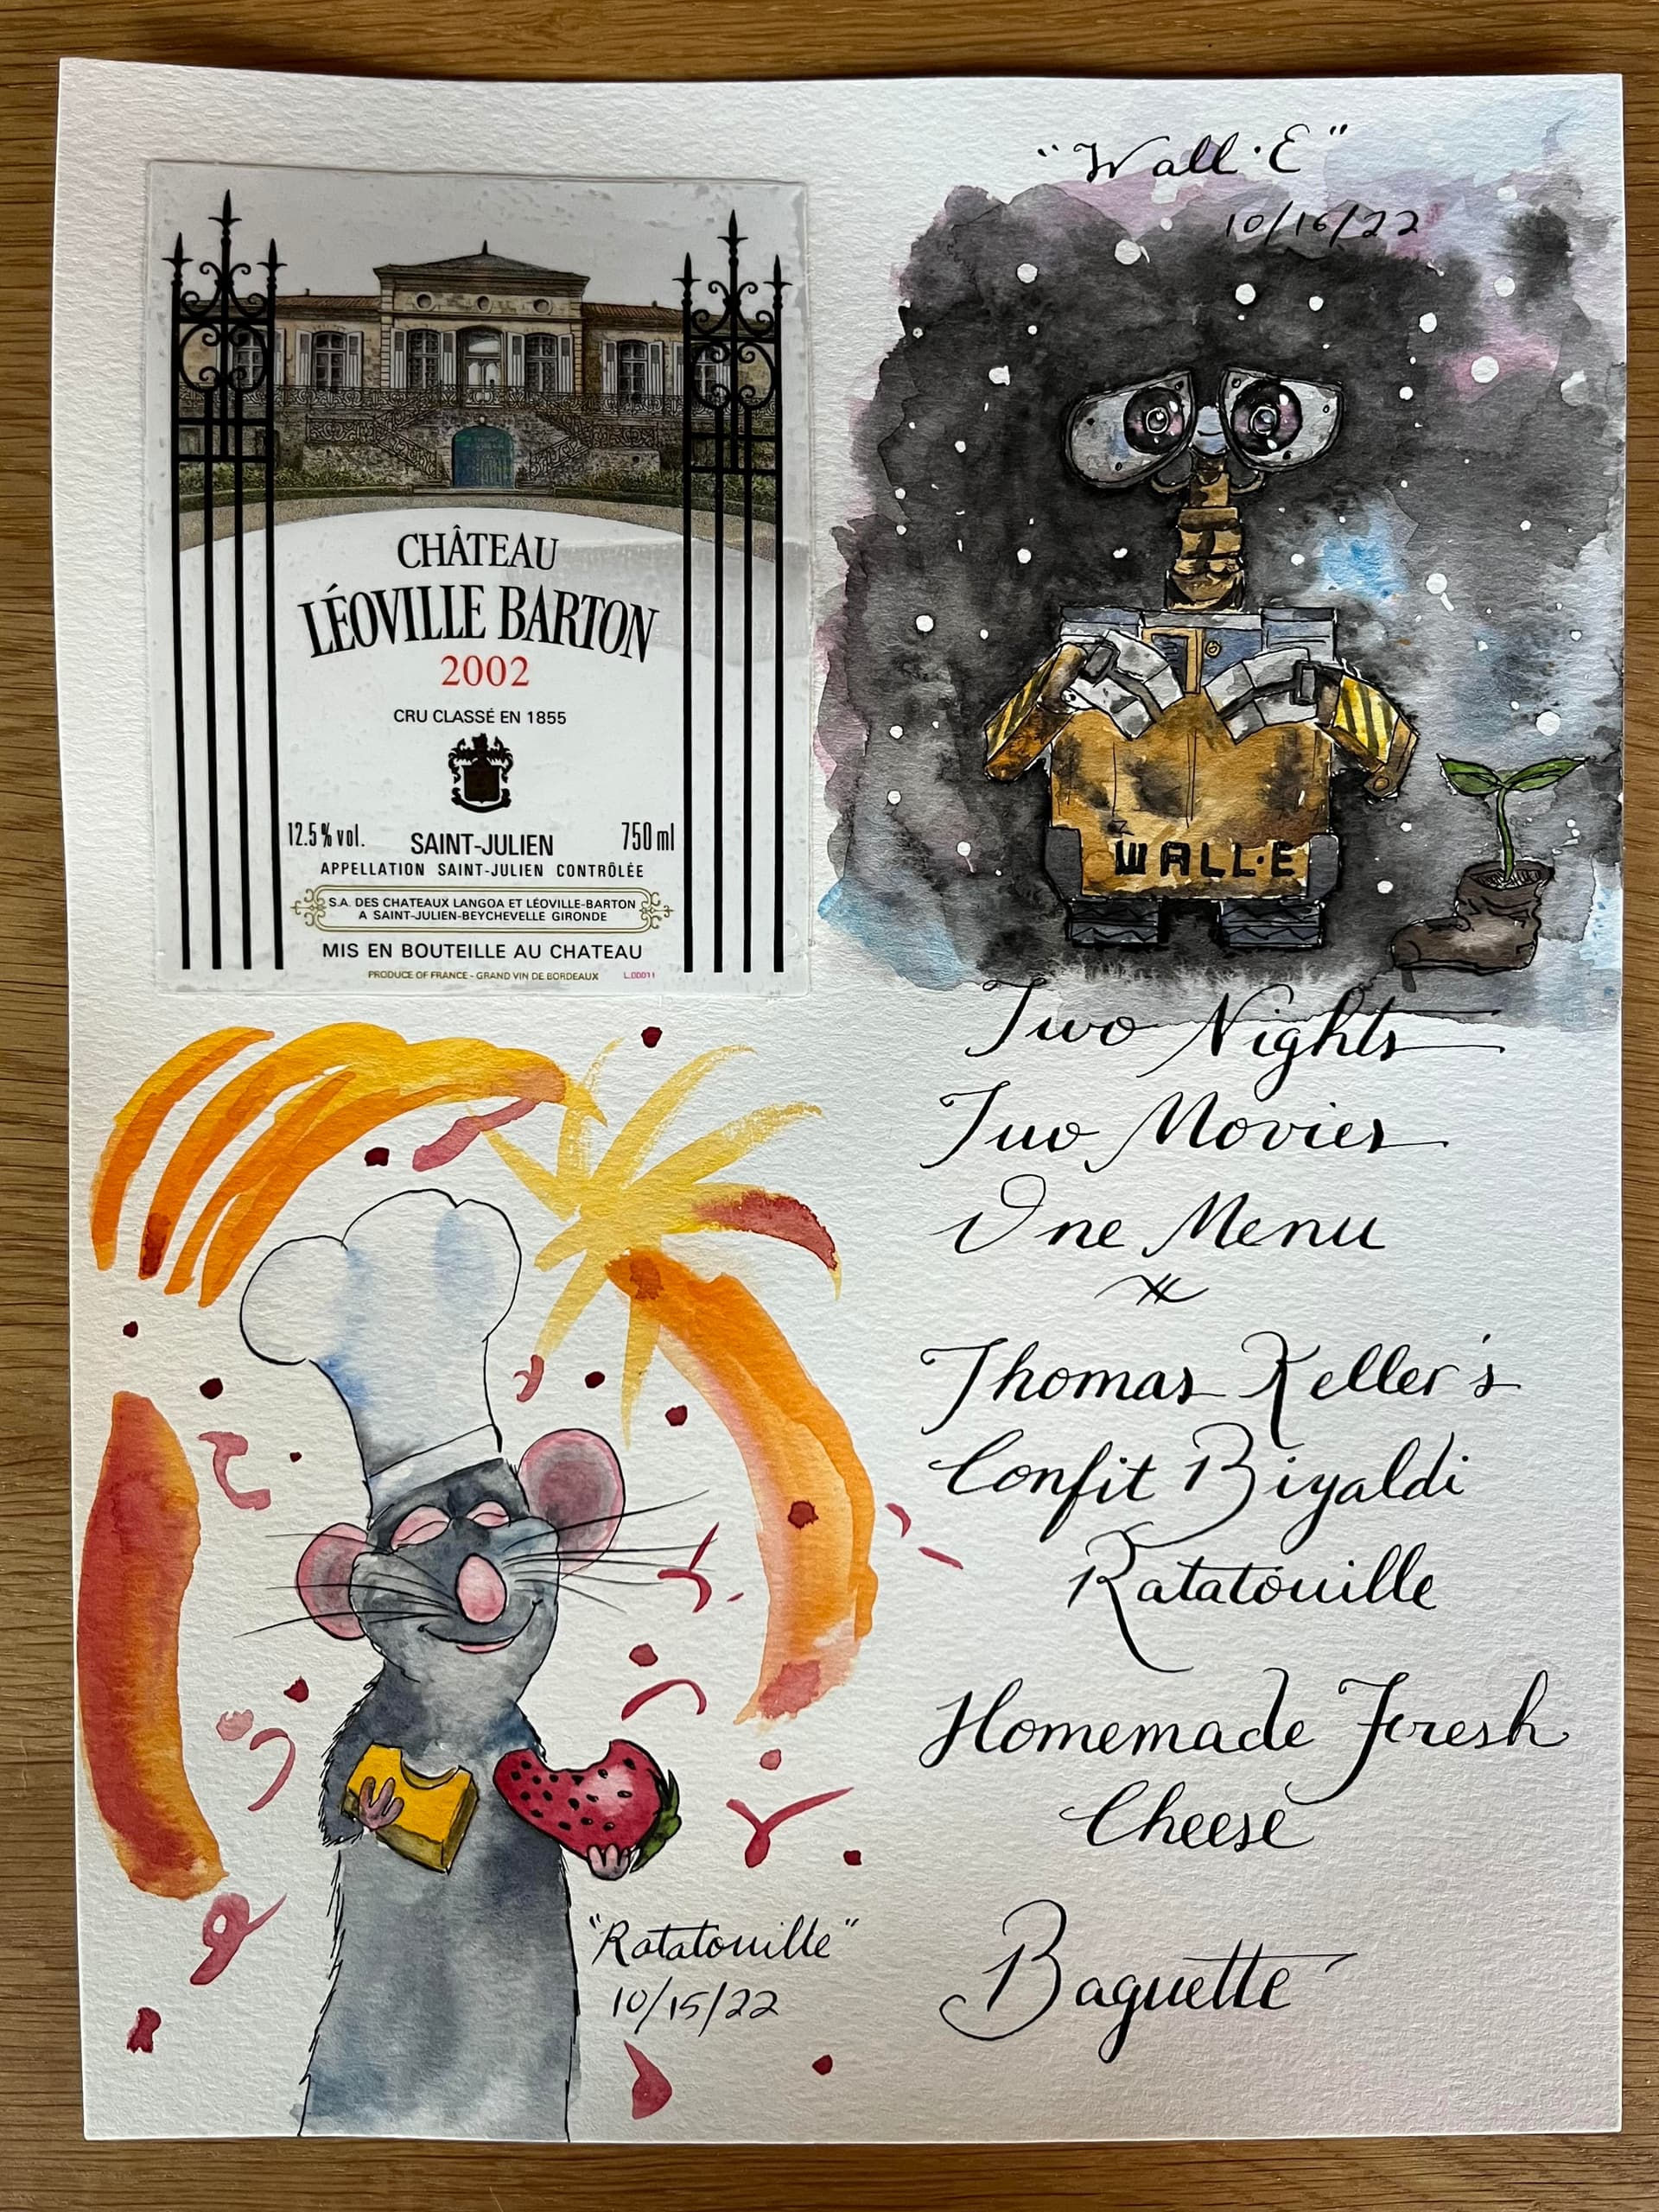 CHÂTEAU
LÉOVILLE BARTON
2002
CRU CLASSÉ EN 1855
12.5% vol. SAINT-JULIEN 750 ml
APPELLATION SAINT-JULIEN CONTRÔLÉE
S.A. DES CHATEAUX LANGOA ET LÉOVILLE-BARTON
A SAINT-JULIEN-BEYCHEVELLE GIRONDE
MIS EN BOUTEILLE AU CHATEAU
PRODUCE OF FRANCE - GRAND VIN DE BORDEAUX L.00011
"Wall·E"
10/16/22
WALL·E
Two Nights
Two Movies
One Menu
Thomas Keller's
Confit Biyaldi
Ratatouille
Homemade Fresh
Cheese
Baguette
"Ratatouille"
10/15/22